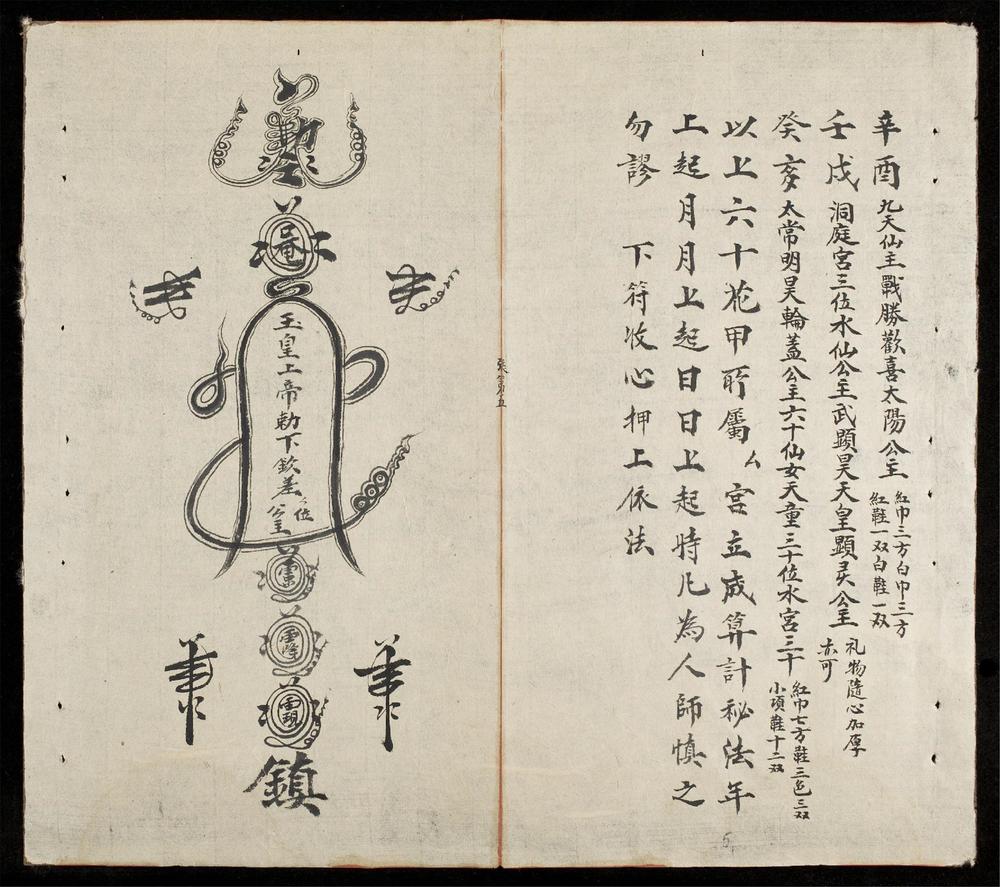 辛酉九天仙主戰勝歡喜太陽公主 紅巾三方白巾三方
紅鞋一双白鞋一双
壬戌洞庭宮三位水仙公主武顕昊天皇顕灵公主 礼物隨心加厚
亦可
癸亥太常明昊輪蓋公主六十仙女天童三十位水宮三十 紅巾七方鞋三色三双
小項鞋十二双
以上六十花甲所屬厶宮立成算計秘法年
上起月月上起日日上起時凡為人師慎之
勿謬 下符收心押上依法
張第五
唵
玉皇上帝勅下欽差位公主
鎮